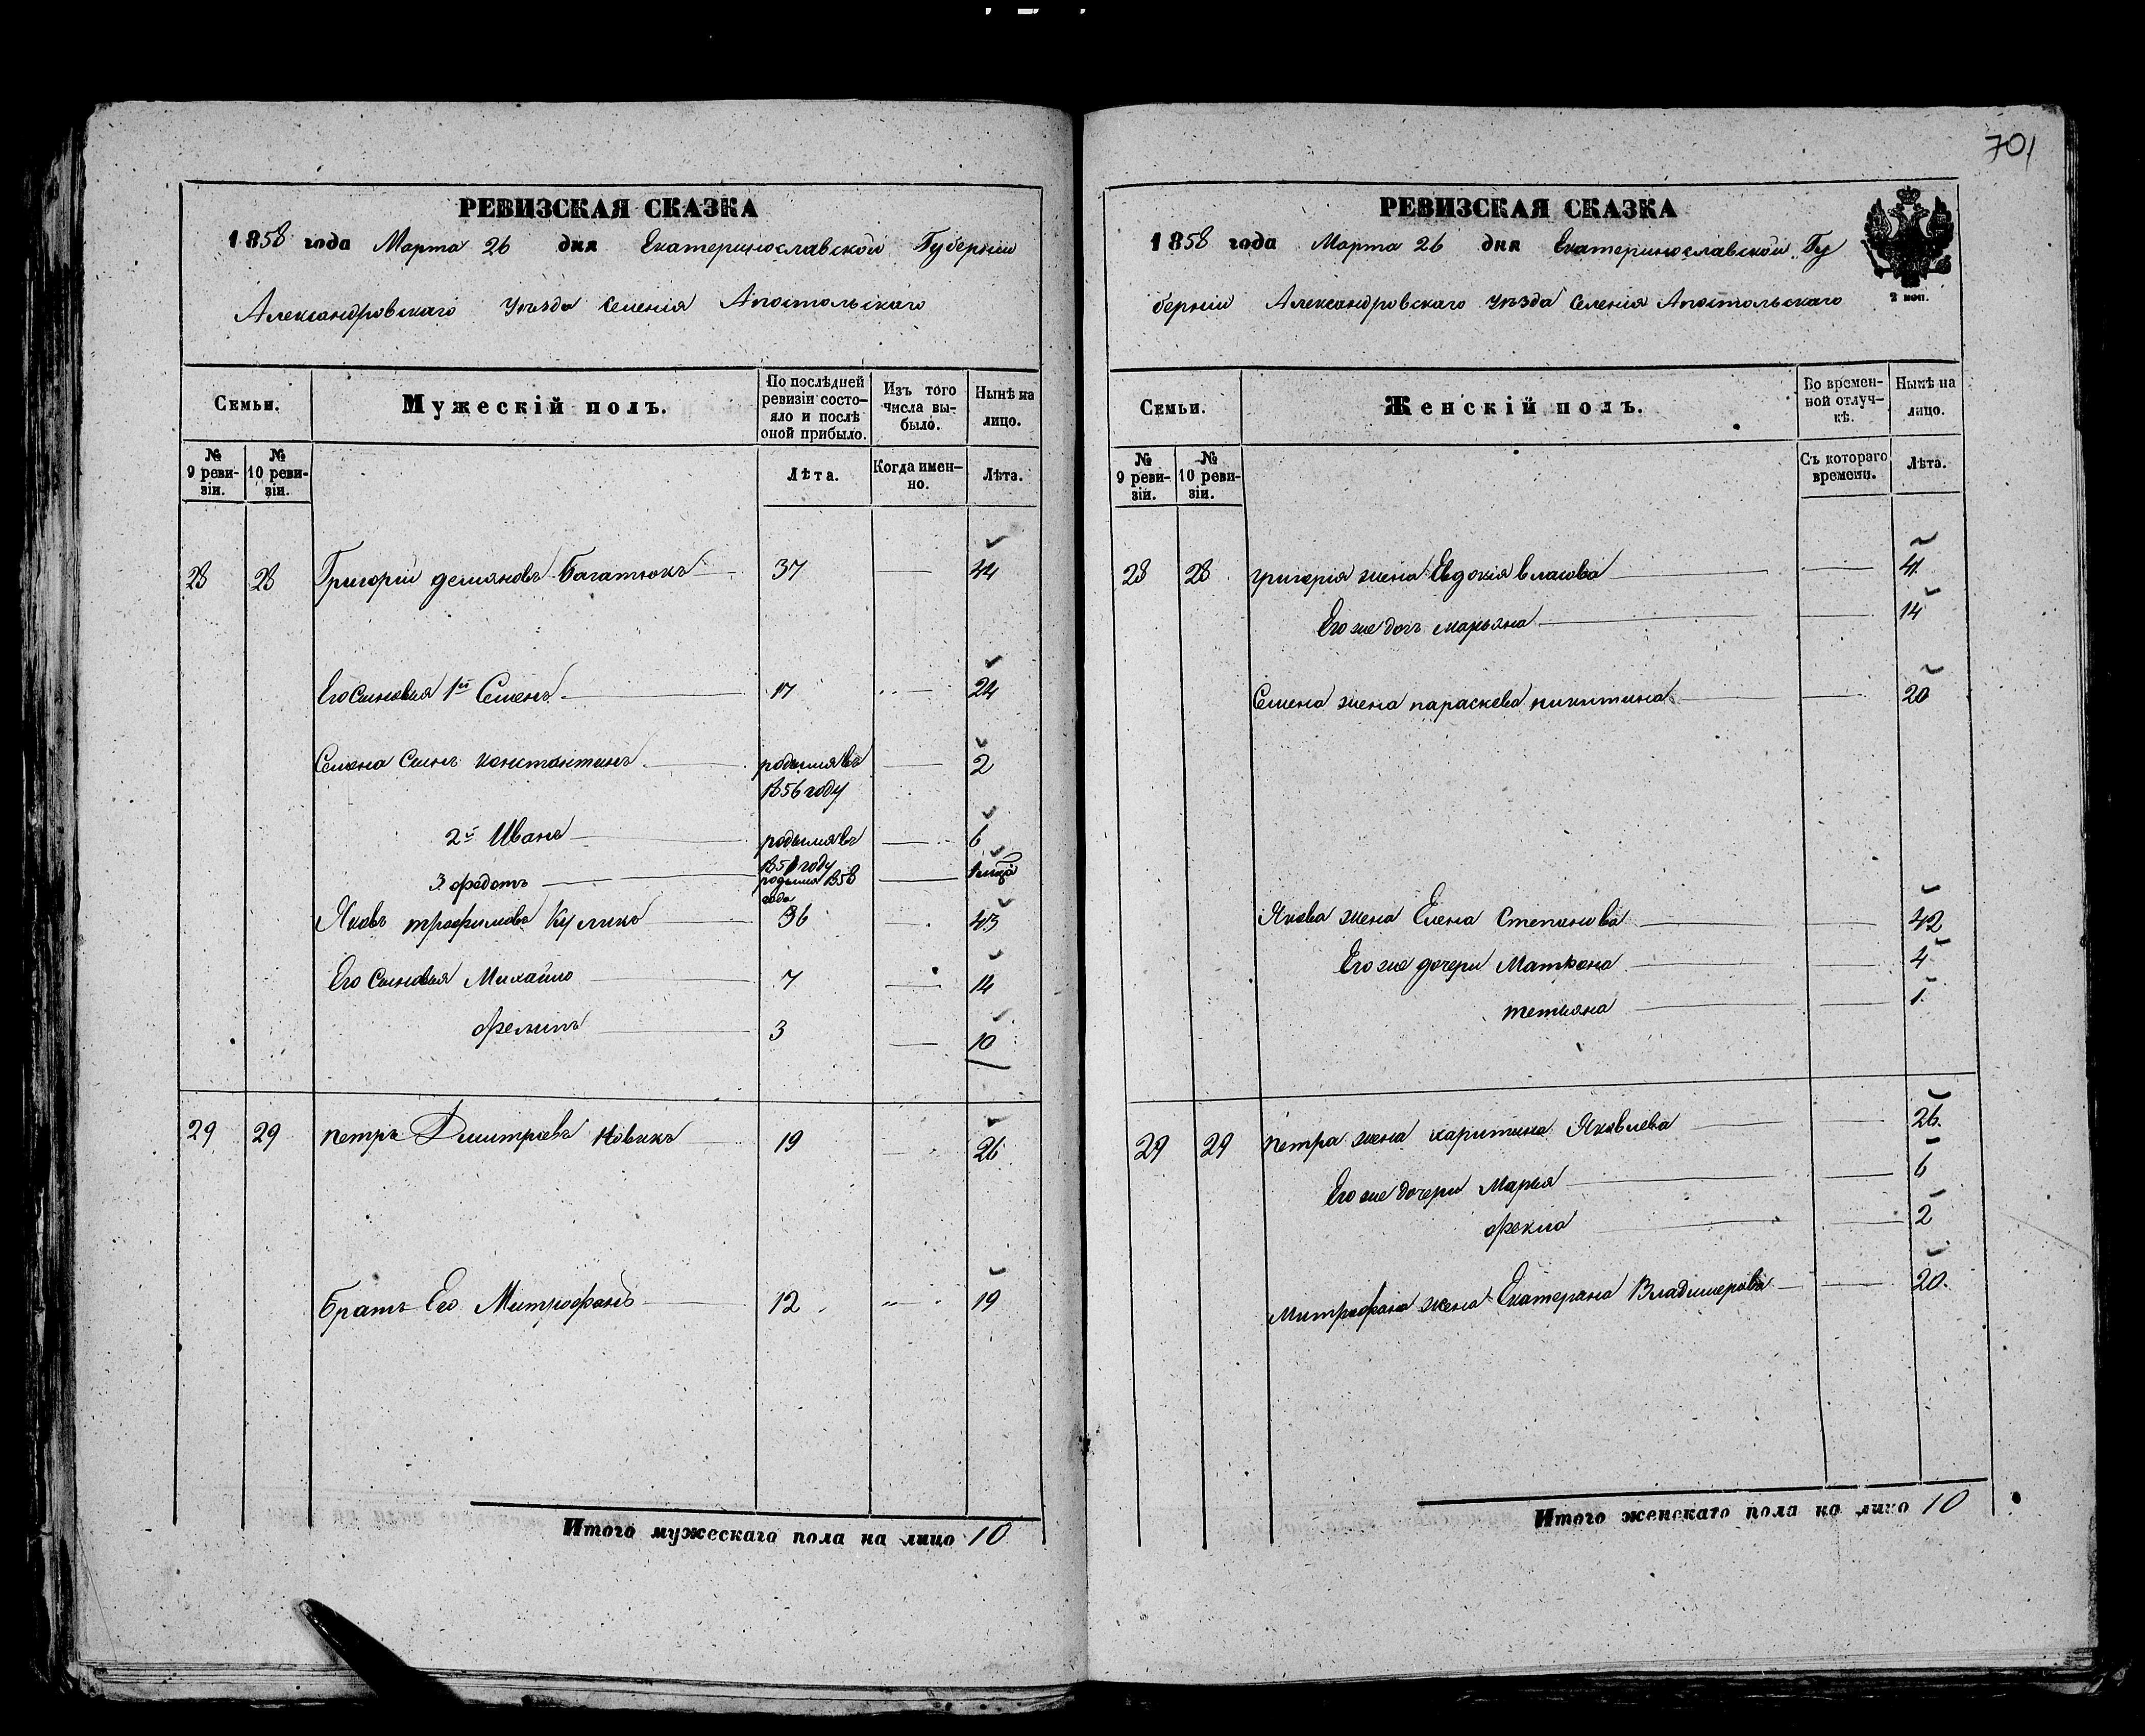 701
РЕВИЗСКАЯ СКАЗКА
1858 года Марта 26 дня Екатеринославской Губерніи
Александровскаго Уѣзда Селенія Апостольскаго
Семьи.
Мужескій полъ.
По послѣдней ревизіи состояло и послѣ оной прибыло.
Изъ того числа выбыло.
Нынѣ на лицо.
№ 9 ревизіи.
№ 10 ревизіи.
Лѣта.
Когда именно.
Лѣта.
28 28 Григорій демяновъ Багатюкъ 37 44
Его Сыновья 1й Семенъ 17 24
Семена Сынъ константинъ родился въ 1856 году 2
2й Иванъ родился въ 1851 году 6
3. федотъ родился 1858 года 1 мца
Яковъ трофимовъ Куликъ 36 43
Его Сыновья Михайло 7 14
филипъ 3 10
29 29 петръ Дмитріевъ Новикъ 19 26
братъ Его Митрофанъ 12 19
Итого мужескаго пола на лицо 10
РЕВИЗСКАЯ СКАЗКА
1858 года Марта 26 дня Екатеринославской Гу
берніи Александровскаго Уѣзда Селенія Апостольскаго
2 коп.
Семьи.
Женскій полъ.
Во временной отлучкѣ.
Нынѣ на лицо.
№ 9 ревизіи.
№ 10 ревизіи.
Съ котораго времени.
Лѣта.
28 28 григорія жена Евдокія власова 41
Его же дочь марьяна 14
Семена жена параскева никитина 20
Якова жена Елена Степанова 42
Его же дочери Матрона 4
тетяна 1
29 29 петра жена харитина Яковлева 26.
Его же дочери Марья 6
фекла 2
Митрофана жена Екатерана Владимерова 20.
Итого женскаго пола на лицо 10